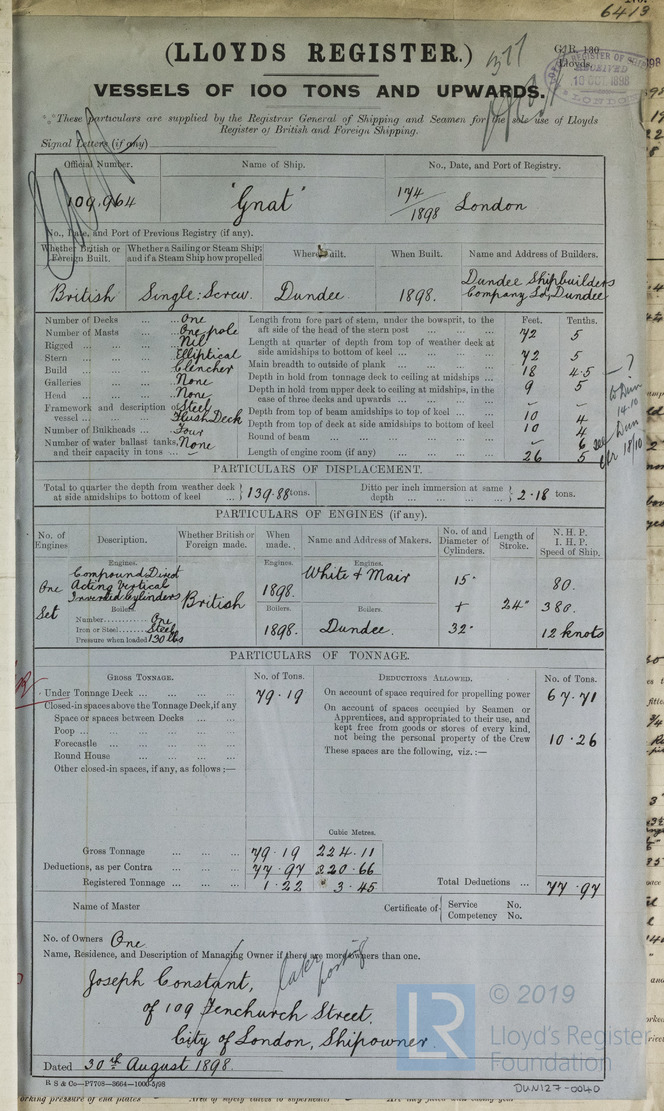 6413
(LLOYDS REGISTER.)
G.R. 130
Lloyds
RECEIVED
10 OCT 1898
LONDON
VESSELS OF 100 TONS AND UPWARDS.
These particulars are supplied by the Registrar General of Shipping and Seamen for the sole use of Lloyds
Register of British and Foreign Shipping.
Signal Letters (if any)
Official Number. Name of Ship. No., Date, and Port of Registry.
109,964 "Gnat" 174/1898 London
No., Date, and Port of Previous Registry (if any).
Whether British or Foreign Built. Whether a Sailing or Steam Ship; and if a Steam Ship how propelled Where Built. When Built. Name and Address of Builders.
British Single: Screw. Dundee. 1898. Dundee Shipbuilders Company Ld, Dundee
Number of Decks ... ... One
Number of Masts ... ... One pole
Rigged ... ... ... Nil
Stern ... ... ... Elliptical
Build ... ... ... Clencher
Galleries ... ... ... None
Head ... ... ... None
Framework and description of vessel ... ... Steel Flush Deck
Number of Bulkheads ... Four
Number of water ballast tanks, and their capacity in tons ... None –
Feet. Tenths.
Length from fore part of stem, under the bowsprit, to the aft side of the head of the stern post ... ... ... 72 5
Length at quarter of depth from top of weather deck at side amidships to bottom of keel ... ... ... 72 5
Main breadth to outside of plank ... ... ... 18 4.5
Depth in hold from tonnage deck to ceiling at midships ... 9 5
Depth in hold from upper deck to ceiling at midships, in the case of three decks and upwards ... ... ... – –
Depth from top of beam amidships to top of keel ... ... 10 4
Depth from top of deck at side amidships to bottom of keel 10 4
Round of beam ... ... ... – 6
Length of engine room (if any) ... ... ... 26 5
?
to Dun
14-10
see Dun
18/10
PARTICULARS OF DISPLACEMENT.
Total to quarter the depth from weather deck at side amidships to bottom of keel ... 139.88 tons. Ditto per inch immersion at same depth ... ... ... 2.18 tons.
PARTICULARS OF ENGINES (if any).
No. of Engines. Description. Whether British or Foreign made. When made. Name and Address of Makers. No. of and Diameter of Cylinders. Length of Stroke. N. H. P. I. H. P. Speed of Ship.
Engines. Engines. Engines.
One Set Compound Direct Acting Vertical Inverted Cylinders British 1898. White & Mair 15" + 32" 24" 80. 380. 12 knots
Boilers. Boilers. Boilers.
Number One
Iron or Steel Steel
Pressure when loaded 130 lbs
1898. Dundee.
PARTICULARS OF TONNAGE.
GROSS TONNAGE. No. of Tons. DEDUCTIONS ALLOWED. No. of Tons.
Under Tonnage Deck ... ... ... 79.19
Closed-in spaces above the Tonnage Deck, if any
Space or spaces between Decks ... ...
Poop ... ... ... ...
Forecastle ... ... ... ...
Round House ... ... ...
Other closed-in spaces, if any, as follows :—
On account of space required for propelling power 67.71
On account of spaces occupied by Seamen or Apprentices, and appropriated to their use, and kept free from goods or stores of every kind, not being the personal property of the Crew 10.26
These spaces are the following, viz. :—
Cubic Metres.
Gross Tonnage ... ... ... 79.19 224.11
Deductions, as per Contra ... ... ... 77.97 220.66
Registered Tonnage ... ... ... 1.22 3.45 Total Deductions ... 77.97
Name of Master Certificate of Service No.
Competency No.
No. of Owners One
Name, Residence, and Description of Managing Owner if there are more owners than one.
later
Joseph Constant,
of 109 Fenchurch Street,
City of London, Shipowner
Dated 30th August 1898.
R S & Co—P7708—3664—1000—5/98
LR
© 2019
Lloyd's Register
Foundation
DUN127-0040